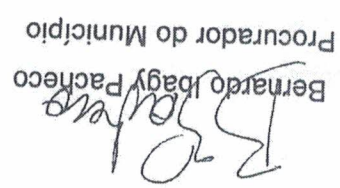 Bernardo Ibagy Pacheco
Procurador do Município